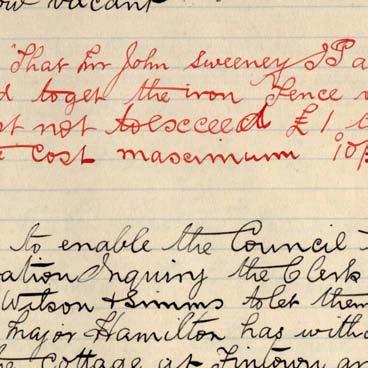 ow vacant
"That Mr John Sweeney JP a
d toget the iron Fence
st not toexceed £1
e Cost maximum 10
to enable the Council
ation Inquiry the Clerk
Wilson & Simms tolet them
Major Hamilton has with
the Cottage at Fintown an